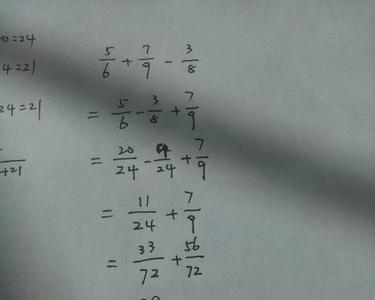 0=24
4=21
24=21
+21
5/6 + 7/9 - 3/8
= 5/6 - 3/8 + 7/9
= 20/24 - 9/24 + 7/9
= 11/24 + 7/9
= 33/72 + 56/72